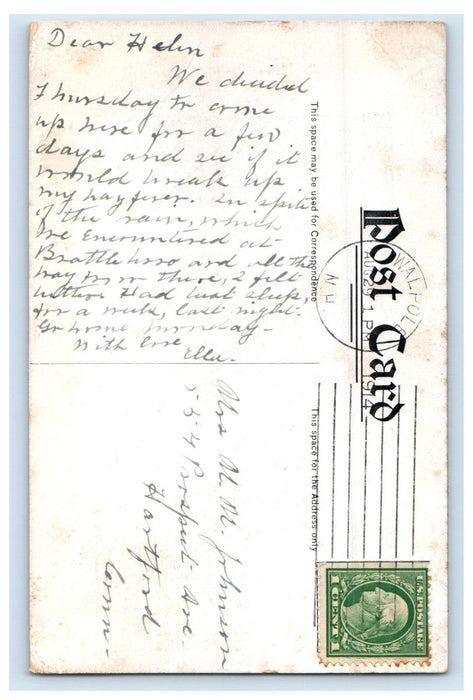 Dear Helen
We decided
Thursday to come
up here for a few
days and see if it
would break up
my hayfever. In spite
of the rain, which
we encountered at
Brattleboro and all the
way from there, I felt
better. Had best sleep,
for a week, last night.
Go home Monday-
With love
Ella-
This space may be used for Correspondence
Post Card
WALPOLE
AUG 29 1 PM
1914
N H
This space for the Address only
Mrs N. M. Johnson
554 Prospect Ave.
Hartford
Conn-
U.S. POSTAGE
1 CENT 1